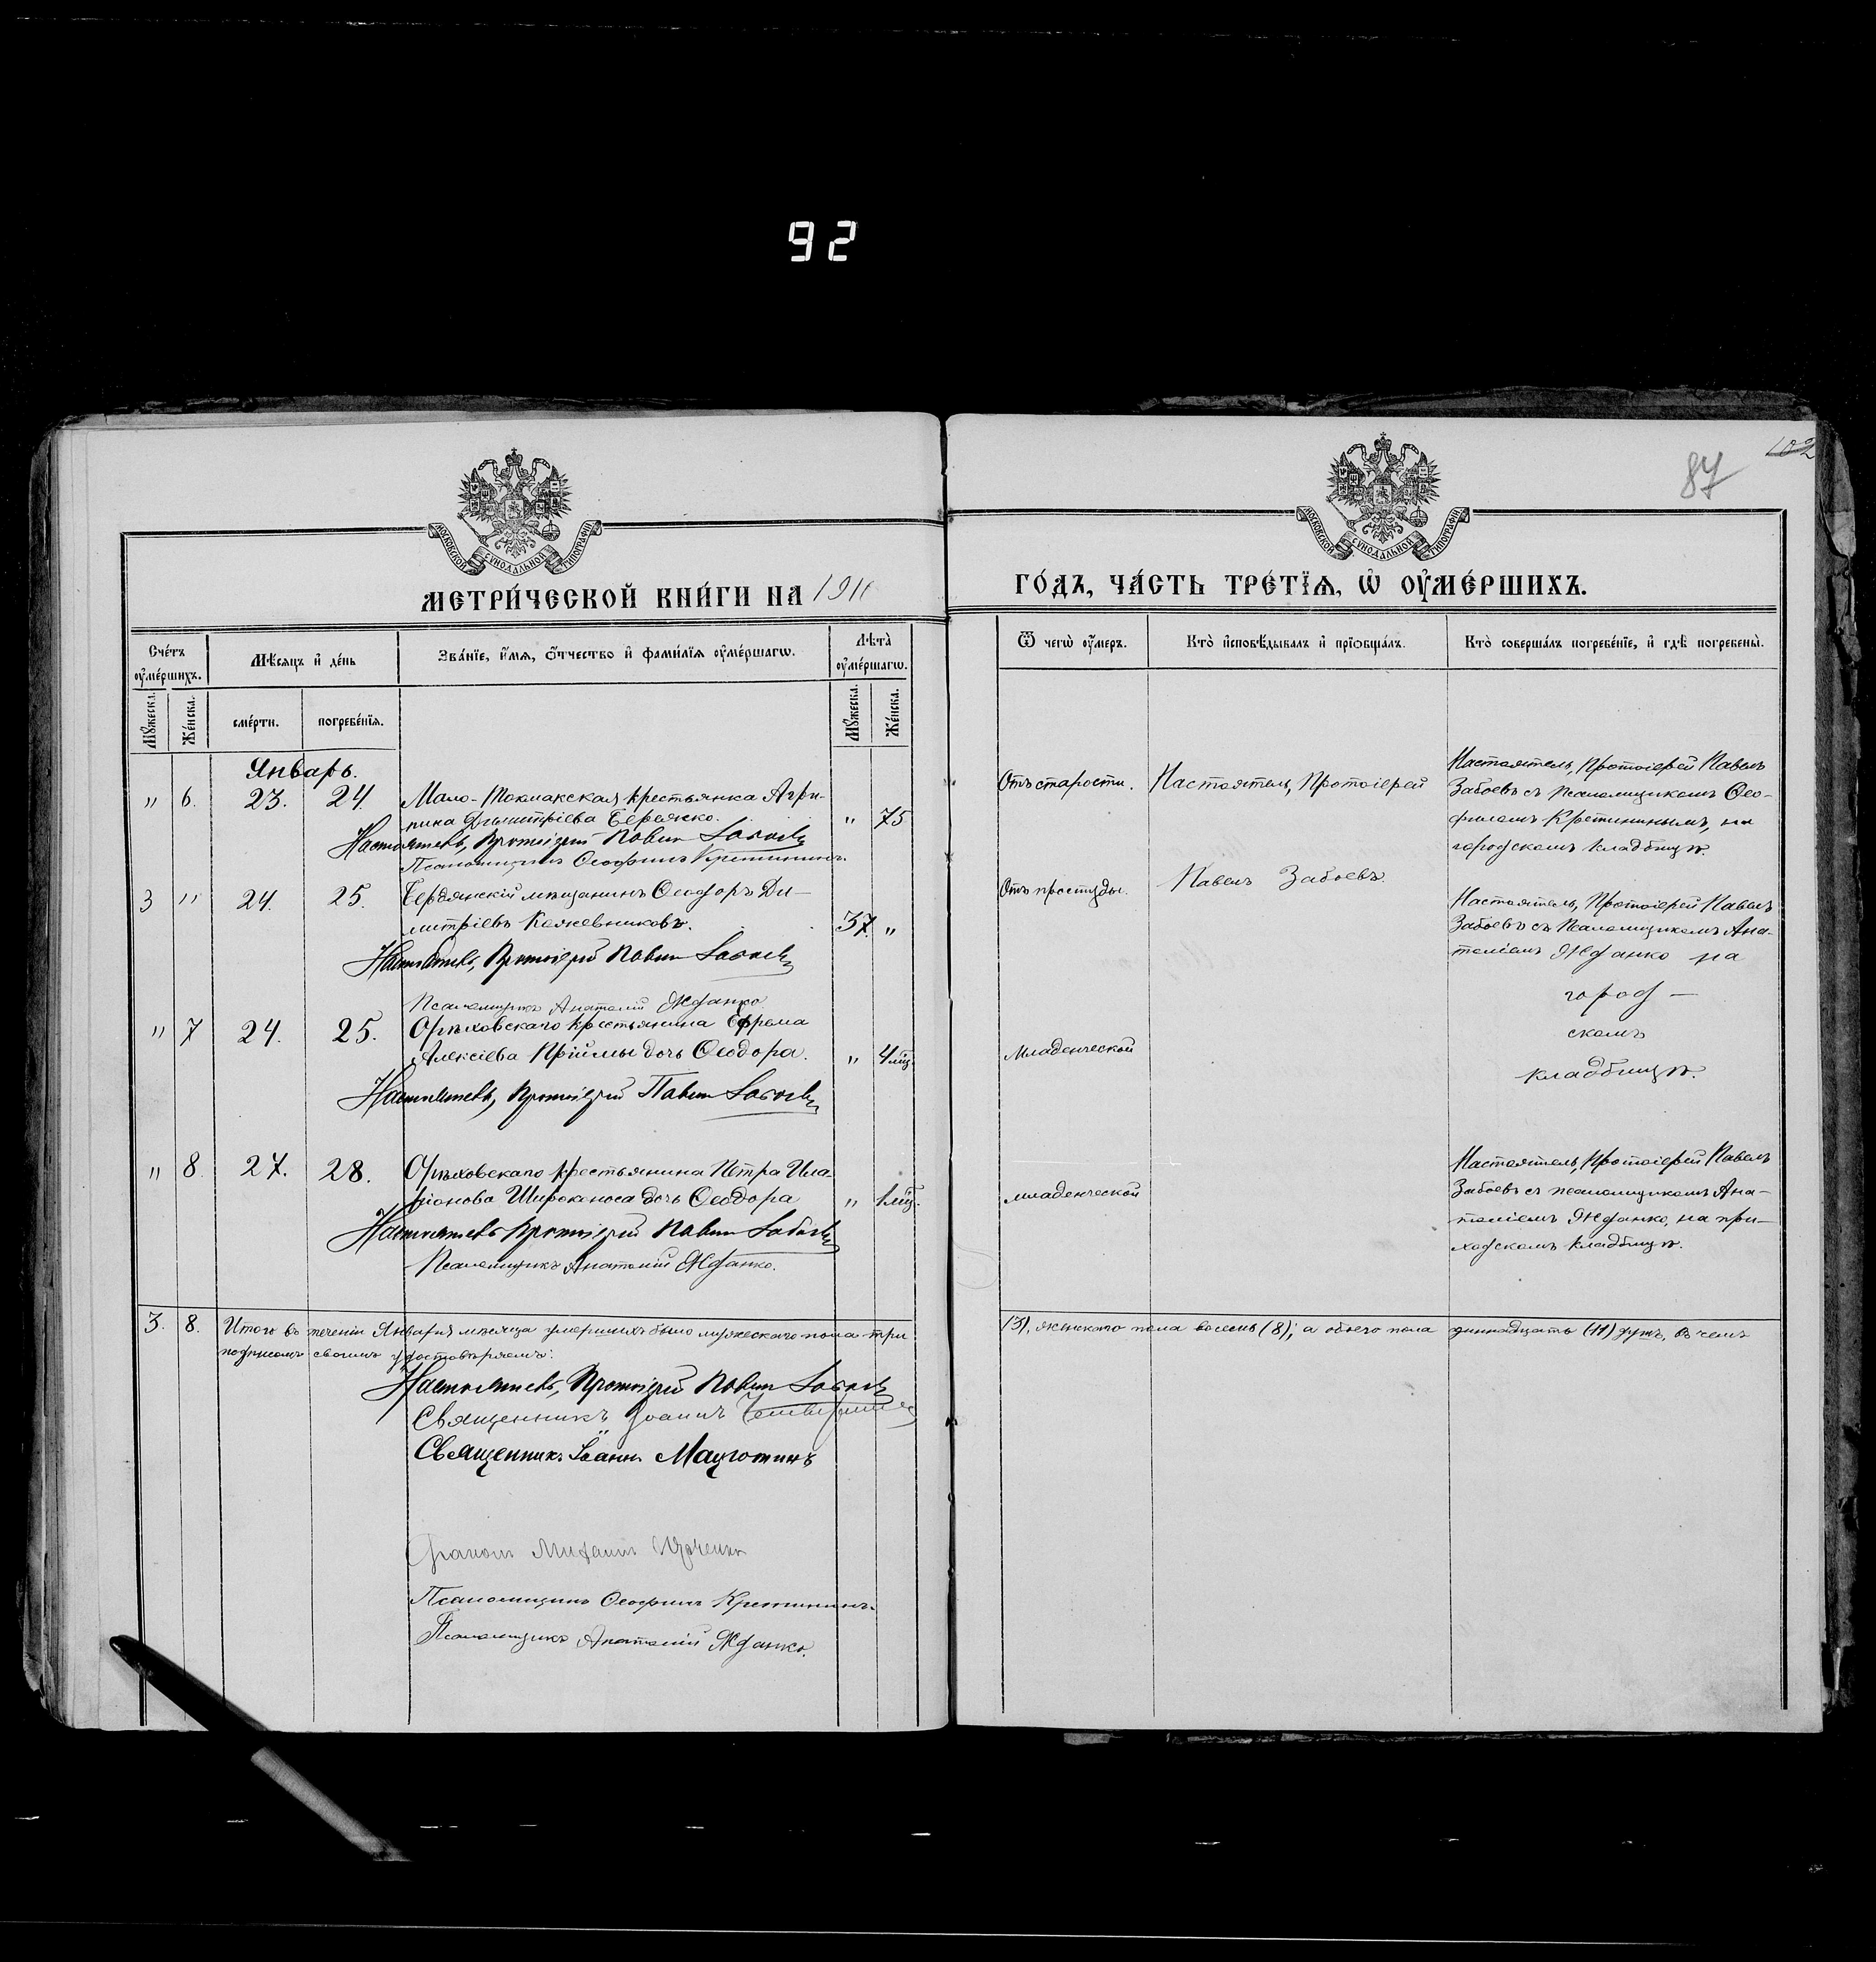 92
102
87
МОСКОВСКОЙ СѴНОДАЛЬНОЙ ТИПОГРАФІИ
МОСКОВСКОЙ СѴНОДАЛЬНОЙ ТИПОГРАФІИ
МЕТРИ́ЧЕСКОЙ КНИ́ГИ НА 191
ГО́ДЪ, ЧА́СТЬ ТРЕ́ТЇѦ, Ѡ҆ ОУ҆МЕ́РШИХЪ.
Сче́тъ оу҆ме́ршихъ.
Мѣ́сѧцъ и҆ де́нь
Зва́нїе, и҆́мѧ, ѻ҆́тчество и҆ фами́лїѧ оу҆ме́ршагѡ.
Лѣта̀ оу҆ме́ршагѡ.
Ѿ чегѡ̀ оу҆́меръ.
Кто̀ и҆сповѣ́дывалъ и҆ прїѡбща́лъ.
Кто̀ соверша́лъ погребе́нїе, и҆ гдѣ̀ погребены̀.
Мꙋ́жеска.
Же́нска.
сме́рти.
погребе́нїѧ.
Мꙋ́жеска.
Же́нска.
Январь.
" 6. 23. 24. Мало-Токмакская крестьянка Агри-
пина Димитріева Бережко. " 75
Настоятель, Протоіерей Павелъ Забоевъ
Псаломщикъ Ѳеофилъ Кретининъ.
Отъ старости. Настоятель, Протоіерей
Павелъ Забоевъ.
Настоятель, Протоіерей Павелъ
Забоевъ съ псаломщикомъ Ѳео-
филомъ Кретининымъ, на
городскомъ кладбищѣ.
3 " 24. 25. Бердянскій мѣщанинъ Ѳеодоръ Ди-
митріевъ Кожевниковъ. 37. "
Настоятель, Протоіерей Павелъ Забоевъ
Псаломщикъ Анатолій Жданко
Отъ простуды.
Настоятель, Протоіерей Павелъ
Забоевъ съ Псаломщикомъ Ана-
толіемъ Жданко на
город-
скомъ
кладбищѣ.
" 7 24. 25. Орѣховскаго крестьянина Ефрема
Алексіева Пріймы дочь Ѳеодора. " 4 мц.
Настоятель, Протоіерей Павелъ Забоевъ
Младенческой
" 8 27. 28. Орѣховскаго крестьянина Петра Ила-
ріонова Широконоса дочь Ѳеодора " 1 мц.
Настоятель Протоіерей Павелъ Забоевъ
Псаломщикъ Анатолій Жданко.
младенческой
Настоятель, Протоіерей Павелъ
Забоевъ съ псаломщикомъ Ана-
толіемъ Жданко, на при-
ходскомъ кладбищѣ.
3. 8. Итого въ теченіи Января мѣсяца умершихъ было мужескаго пола три (3), женскаго пола восемь (8); а обоего пола одиннадцать (11) душъ, въ чемъ
подписомъ своимъ удостовѣряемъ:
Настоятель, Протоіерей Павелъ Забоевъ
Священникъ Іоаннъ
Священникъ Іоаннъ
Михаилъ
Псаломщикъ Ѳеофилъ Кретининъ.
Псаломщикъ Анатолій Жданко.